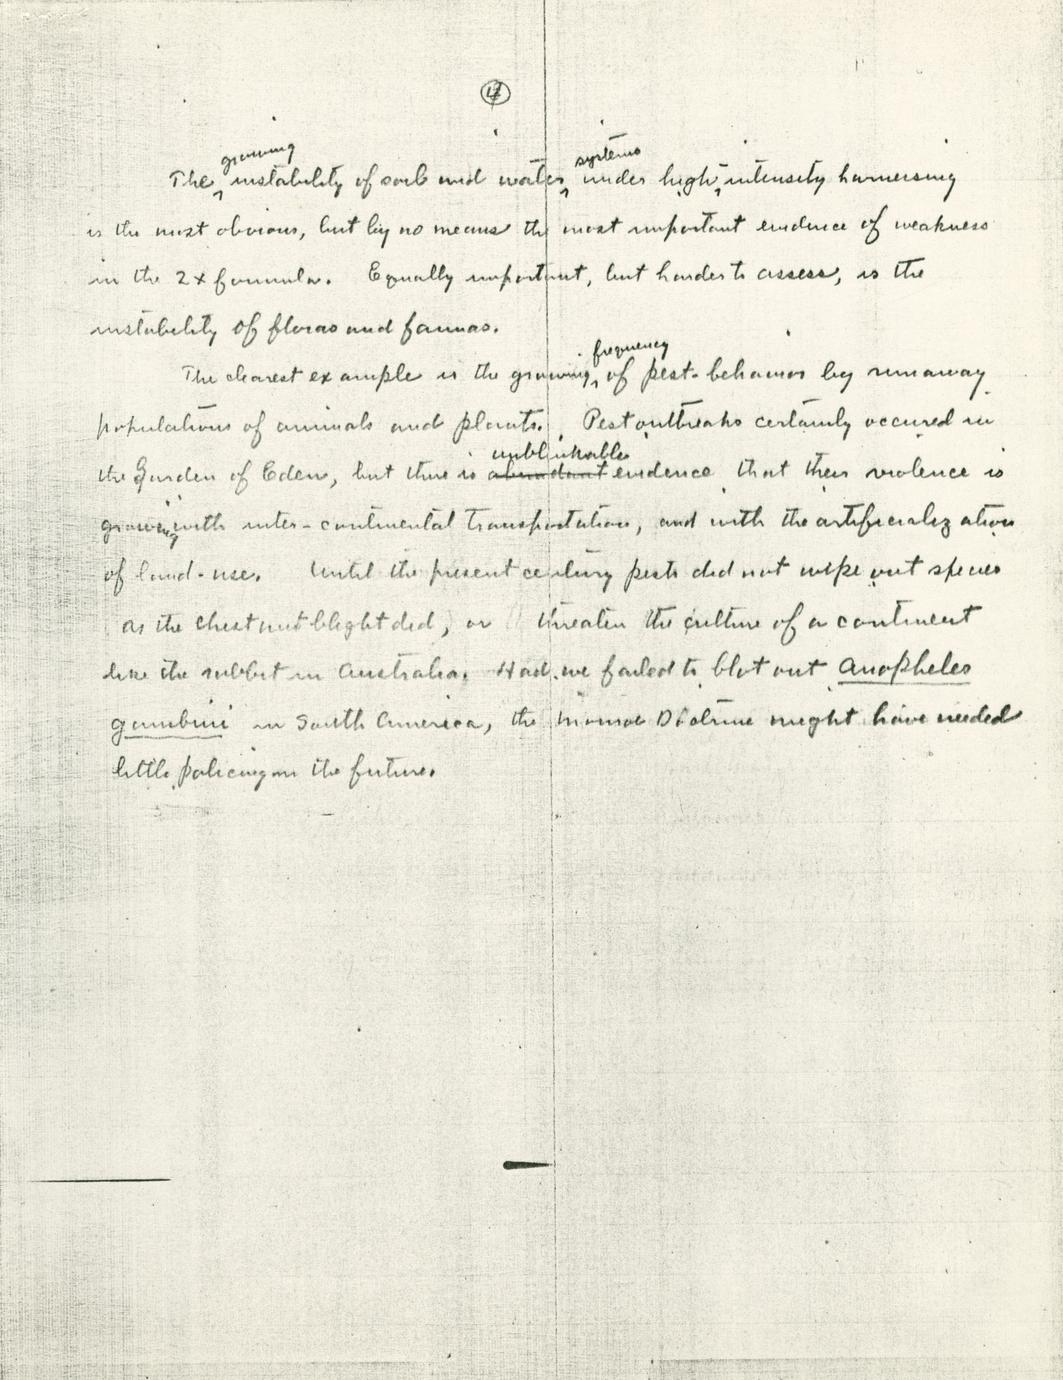 The growing instability of soil and water systems under high intensity harnessing
is the most obvious, but by no means the most important evidence of weakness
in the 2x formula. Equally important, but harder to assess, is the
instability of floras and faunas.
The clearest example is the growing frequency of pest-behavior by runaway
populations of animals and plants. Pest outbreaks certainly occured in
the Garden of Eden, but there is unblinkable abundant evidence that their violence is
growing with inter-continental transportation, and with the artificialization
of land-use. Until the present century pests did not wipe out species
as the chestnut blight did, or threaten the culture of a continent
like the rabbit in Australia. Had we failed to blot out Anopheles
gambini in South America, the Monroe Doctrine might have needed
little policing in the future.